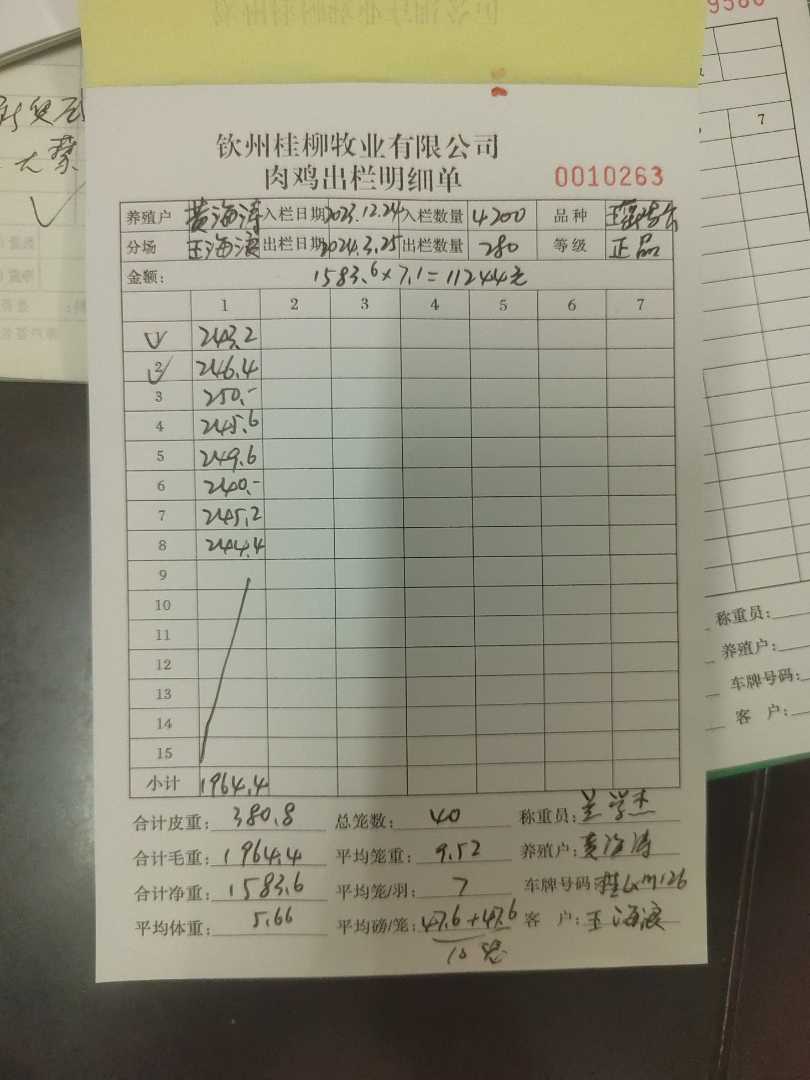 钦州桂柳牧业有限公司
肉鸡出栏明细单 0010263
养殖户 黄海涛 入栏日期 2023.12.24 入栏数量 4200 品种
分场 王海滨 出栏日期 2024.3.25 出栏数量 280 等级 正品
金额: 1583.6×7.1=11244元
1 2 3 4 5 6 7
1 243.2
2 246.4
3 250.-
4 245.6
5 249.6
6 240.-
7 245.2
8 244.4
9
10
11
12
13
14
15
小计 1964.4
合计皮重: 380.8 总笼数: 40 称重员: 兰学杰
合计毛重: 1964.4 平均笼重: 9.52 养殖户: 黄海涛
合计净重: 1583.6 平均笼/羽: 7 车牌号码
平均体重: 5.66 平均磅/笼: 47.6+47.6 客 户: 王海滨
10
9580
7
称重员:
养殖户:
车牌号码:
客 户:
大蔡